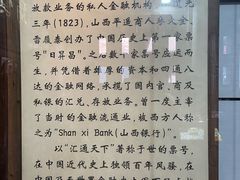 放款业务的私人金融机构
三年(1823)，山西平遥商人
晋履泰创办了中国历史上第一家票号
"日昇昌"。之后数十家票号应运而
生，并凭借着雄厚的资本和四通八
达的金融网络，承揽了国内官，商及
私银的汇兑、存放业务，曾一度主宰
了当时的金融流通业，被西方人称
之为"Shan xi Bank(山西银行)"。
以"汇通天下"著称于世的票号，
在中国近代史上独领百年风骚，在